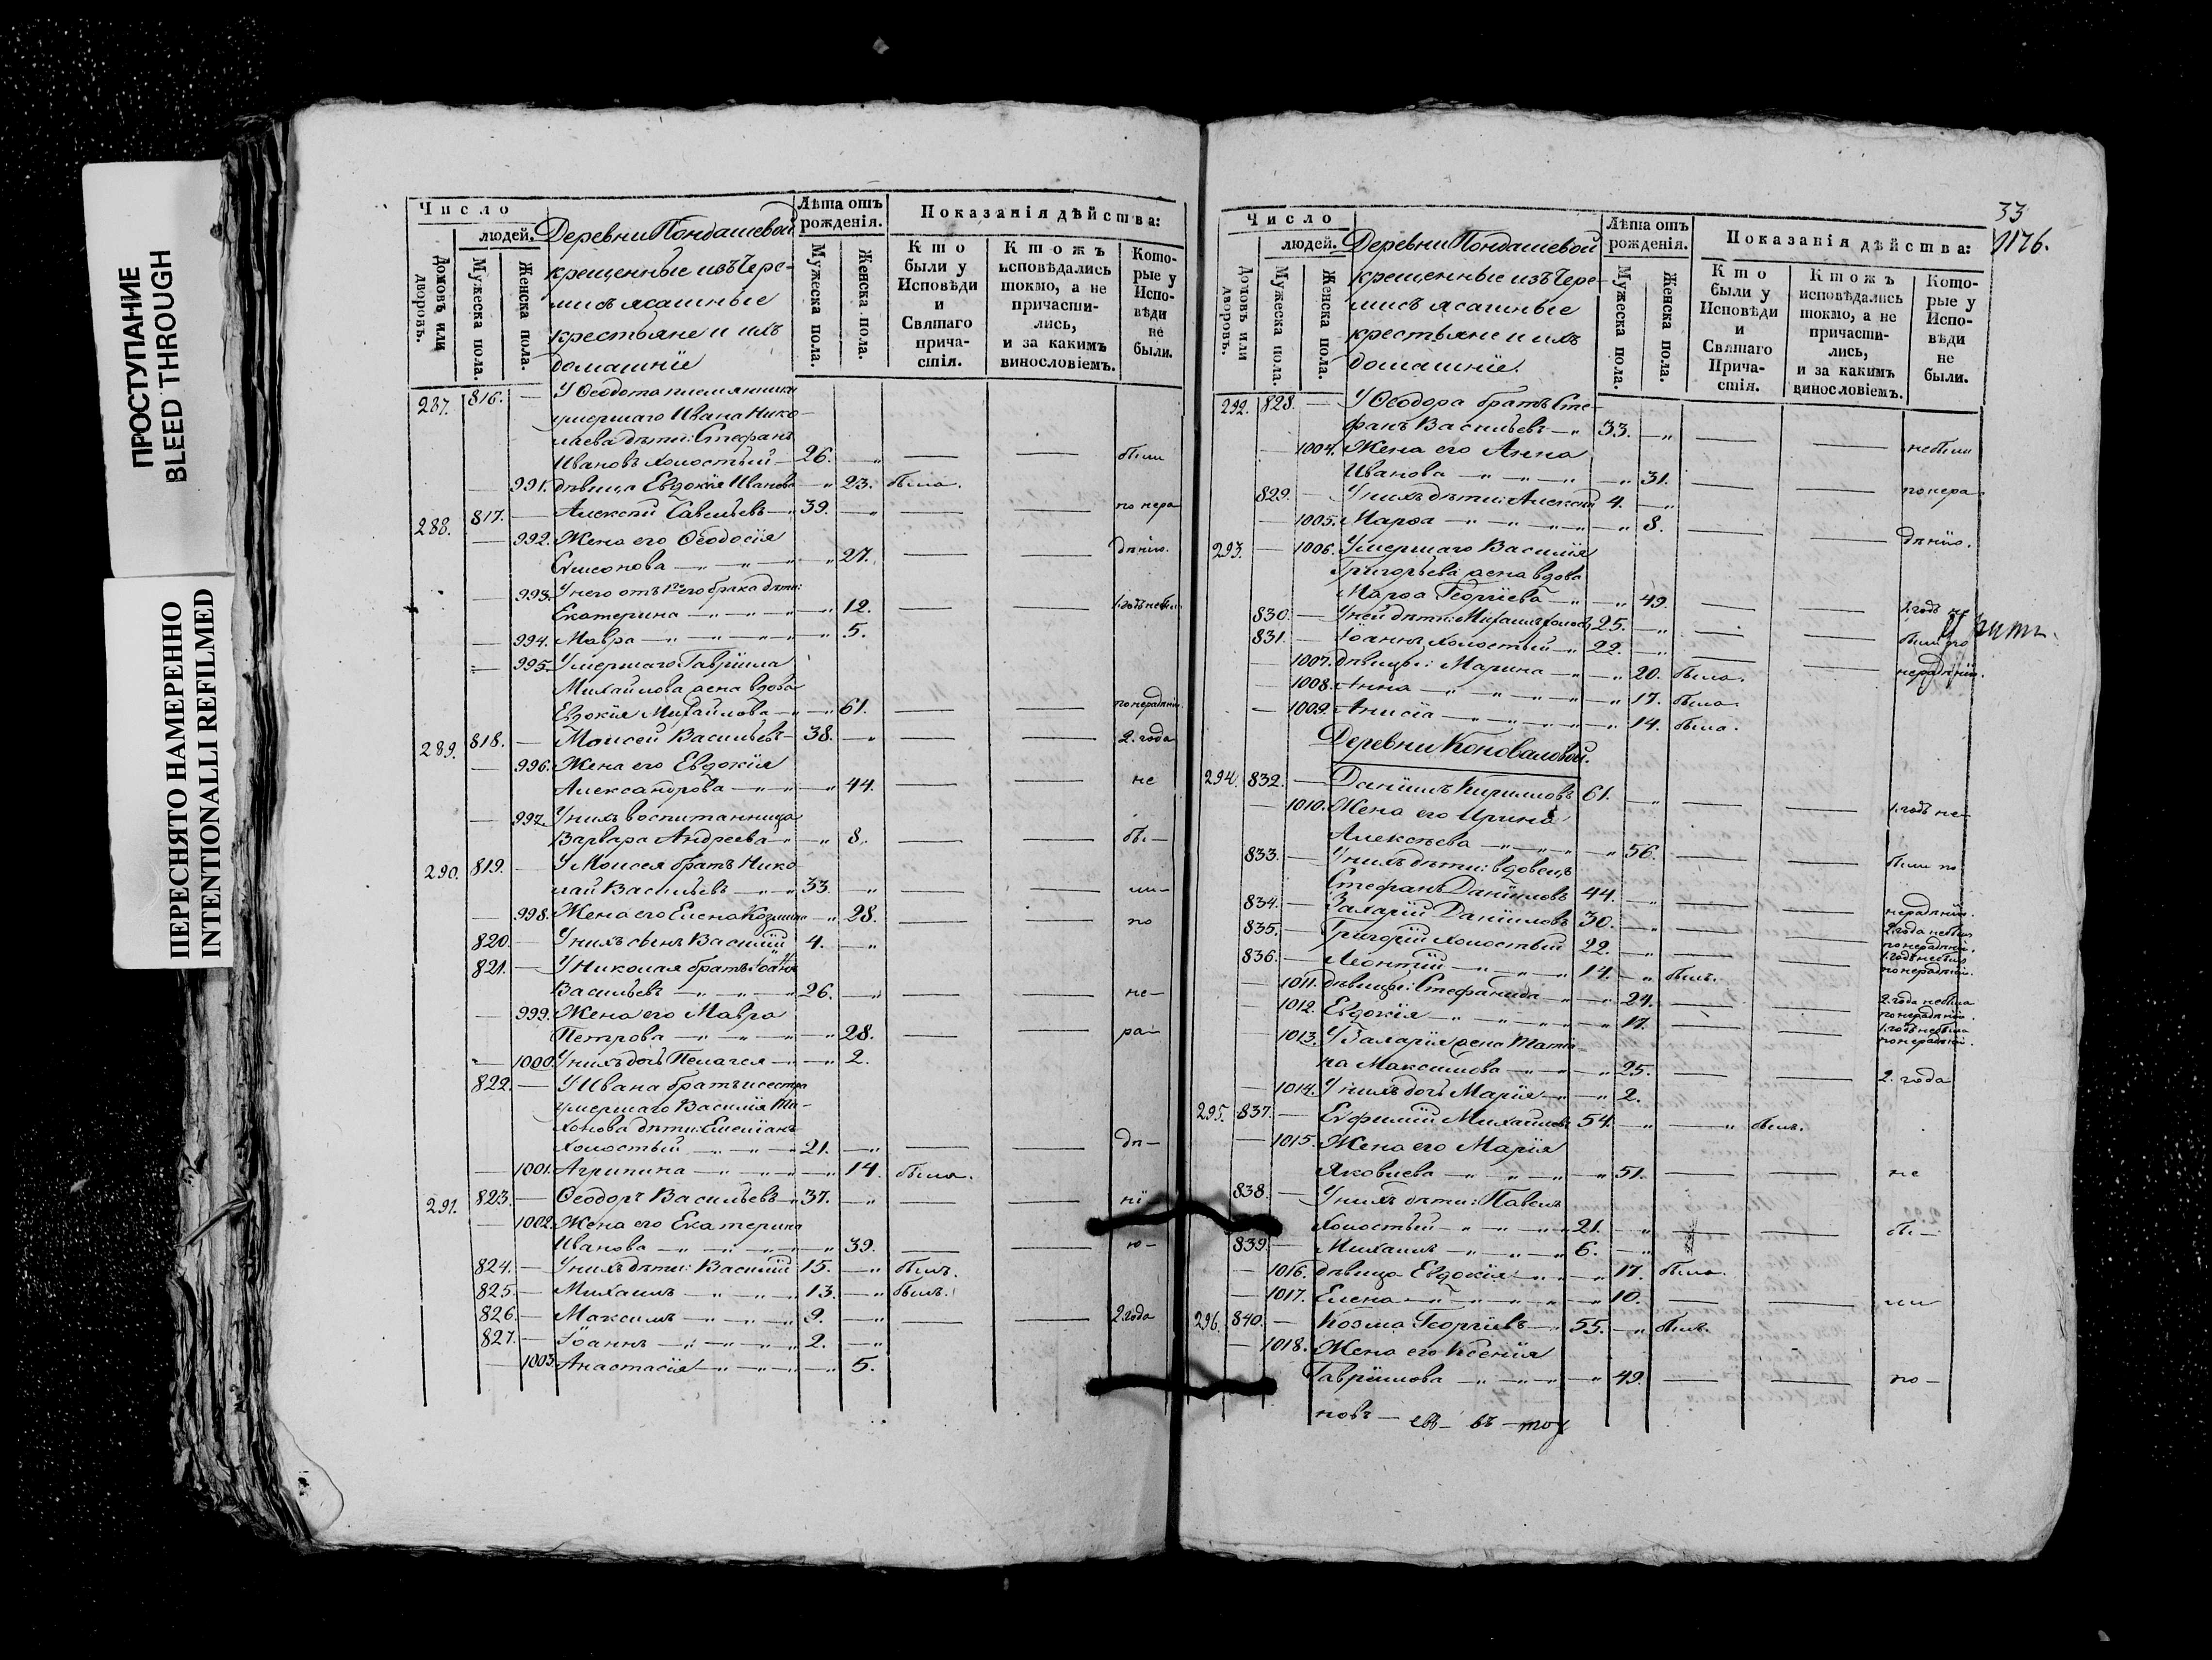 ПРОСТУПАНИЕ
BLEED THROUGH
ПЕРЕСНЯТО НАМЕРЕННО
INTENTIONALLI REFILMED
Число
людей.
Домовъ или дворовъ.
Мужеска пола.
Женска пола.
Деревни Пондашевой
крещенные изъ Чере-
мисъ ясашные
крестьяне и ихъ
домашніе
Лѣта отъ рожденія.
Мужеска пола.
Женска пола.
Показанія дѣйства:
Кто были у Исповѣди и Святаго прича-стія.
Ктожъ исповѣдались токмо, а не причасти-лись, и за какимъ винословіемъ.
Кото-рые у Испо-вѣди не были.
287. 816. — У Ѳеодота племянники
умершаго Ивана Нико-
лаева дѣти: Стефанъ
Ивановъ холостый — 26.
991. дѣвица Евдокія Иванова — 23. была.
288. 817. — Алексѣй Савельевъ — 39. — по нера
992. Жена его Ѳеодосія
Симонова — 27. дѣнію.
993. У него отъ 1го брака дѣти:
Екатерина — 12.
994. Мавра — 5.
995. Умершаго Гавріила
Михайлова жена вдова
Евдокія Михайлова — 61. по нерадѣнію.
289. 818. — Моисей Васильевъ — 38. — 2. года
996. Жена его Евдокія
Александрова — 44. не
997. У нихъ воспитанница
Варвара Андреева — 8. бы —
290. 819. — У Моисея братъ Нико
лай Васильевъ — 33. — ли —
998. Жена его Елена Козмина — 28. по
820. — У нихъ сынъ Василій 4. —
821. — У Николая братъ Іоаннъ
Васильевъ — 26. — не —
999. Жена его Мавра
Петрова — 28. ра —
1000. У нихъ дочь Пелагея — 2.
822. — У Ивана братъ и сестра
умершаго Василія Ти-
хонова дѣти: Емеліанъ
холостый — 21. — дѣ —
1001. Агрипина — 14. была.
291. 823. — Ѳеодоръ Васильевъ — 37. — ні
1002. Жена его Екатерина
Иванова — 39. ю —
824. — У нихъ дѣти: Василій 15. — былъ.
825. — Михаилъ — 13. — былъ.
826. — Максимъ — 9. — 2. года
827. — Іоаннъ — 2. —
1003. Анастасія — 5.
33
1176.
Число
людей.
Домовъ или дворовъ.
Мужеска пола.
Женска пола.
Деревни Пондашевой
крещенные изъ Чере-
мисъ ясашные
крестьяне и ихъ
домашніе.
Лѣта отъ рожденія.
Мужеска пола.
Женска пола.
Показанія дѣйства:
Кто были у Исповѣди и Святаго Прича-стія.
Ктожъ исповѣдались токмо, а не причасти-лись, и за какимъ винословіемъ.
Кото-рые у Испо-вѣди не были.
292. 828. — У Ѳеодора братъ Сте-
фанъ Васильевъ — 33. — небыли
1004. Жена его Анна
Иванова — 31. по нера
829. — У нихъ дѣти: Алексѣй 4. —
1005. Марѳа — 8. дѣнію.
293. — 1006. Умершаго Василія
Григорьева жена вдова
Марѳа Георгіева — 49. 1. годъ не
830. — У ней дѣти: Михаилъ холост. 25. —
831. — Іоаннъ холостый — 22. — были по
1007. дѣвицы: Марина — 20. была. нерадѣнію.
1008. Анна — 17. была.
1009. Анисія — 14. была.
Деревни Коноваловой.
294. 832. — Даніилъ Кириловъ 61. — 1. годъ не
1010. Жена его Ирина
Алексѣева — 56. были по
833. — У нихъ дѣти: вдовецъ
Стефанъ Даніиловъ 44. — нерадѣнію.
834. — Захарій Даніиловъ 30. — 2. года небылъ по нерадѣнію.
835. — Григорій холостый 22. — 1. годъ небылъ по нерадѣнію.
836. — Леонтій — 14. — былъ.
1011. дѣвицы: Стефанида — 24. 2. года небыла по нерадѣнію.
1012. Евдокія — 17. 1. годъ небыла по нерадѣнію.
1013. У Захарія жена Татія
на Максимова — 25. 2. года
1014. У нихъ дочь Марія — 2.
295. 837. — Евфимій Михайловъ 54. — былъ.
1015. Жена его Марія
Яковлева — 51. не
838. — У нихъ дѣти: Павелъ
холостый — 21. — бы —
839. — Михаилъ — 6. —
1016. дѣвица Евдокія — 17. была.
1017. Елена — 10. ли
296. 840. — Козма Георгіевъ — 55. — былъ.
1018. Жена его Ксенія
Гавріилова — 49. по —
новъ —